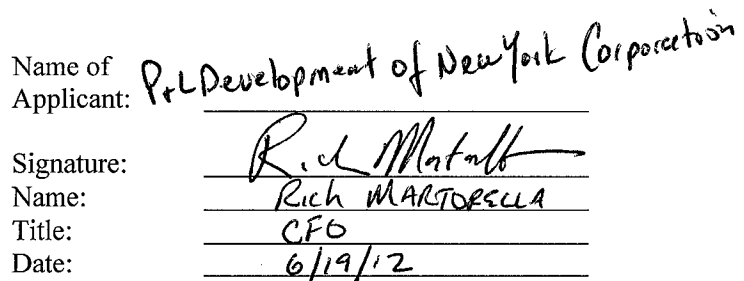 Name of
Applicant: P+L Development of New York Corporation
Signature: Rich Martorella
Name: Rich MARTORELLA
Title: CFO
Date: 6/19/12